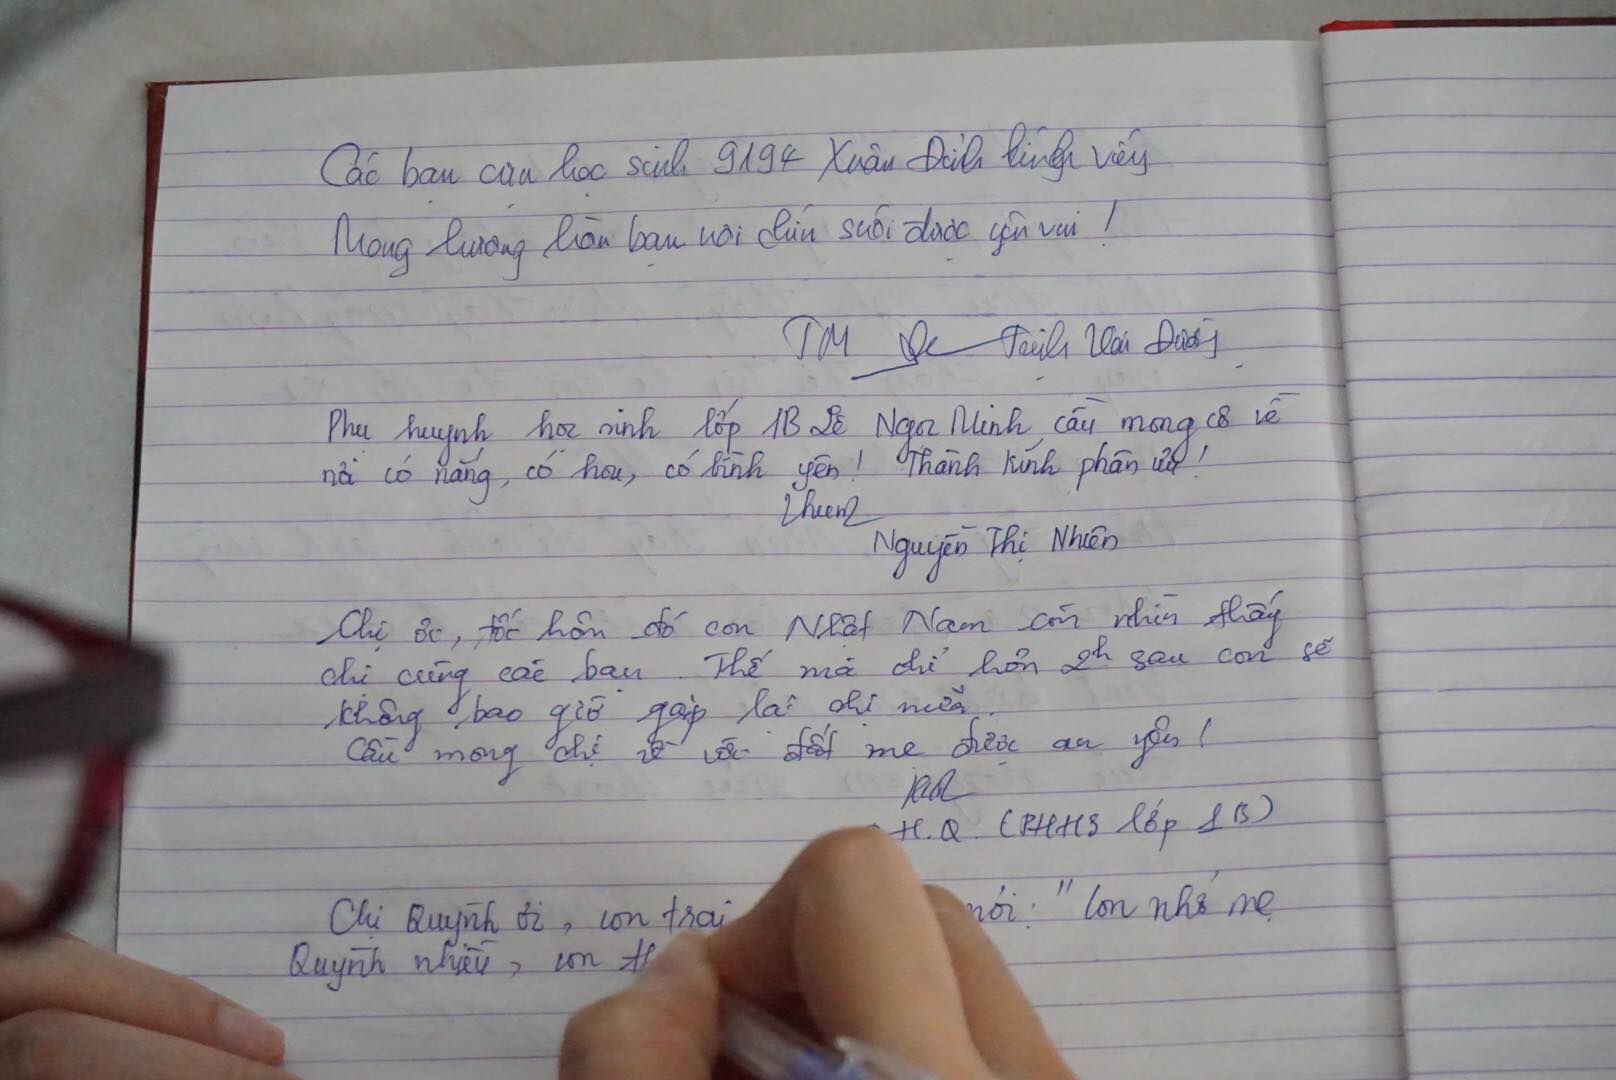 Các bạn cựu học sinh 9194 Xuân Đỉnh kính viếng
Mong hương hồn bạn nơi chín suối được yên vui !
TM Trịnh Văn
Phụ huynh học sinh lớp 1B Lê Ngọc Minh cầu mong cô về
nơi có nắng, có hoa, có bình yên! Thành kính phân ưu!
Nguyễn Thị Nhiên
Chị ơi, tối hôm đó con Nhật Nam còn nhìn thấy
chị cùng các bạn. Thế mà chỉ hơn 2h sau con sẽ
không bao giờ gặp lại chị nữa.
Cầu mong chị về với đất mẹ được an yên!
H.Q. (PHHS lớp 1B)
Chị Quỳnh ơi, con trai nói: "Con nhớ mẹ
Quỳnh nhiều, con